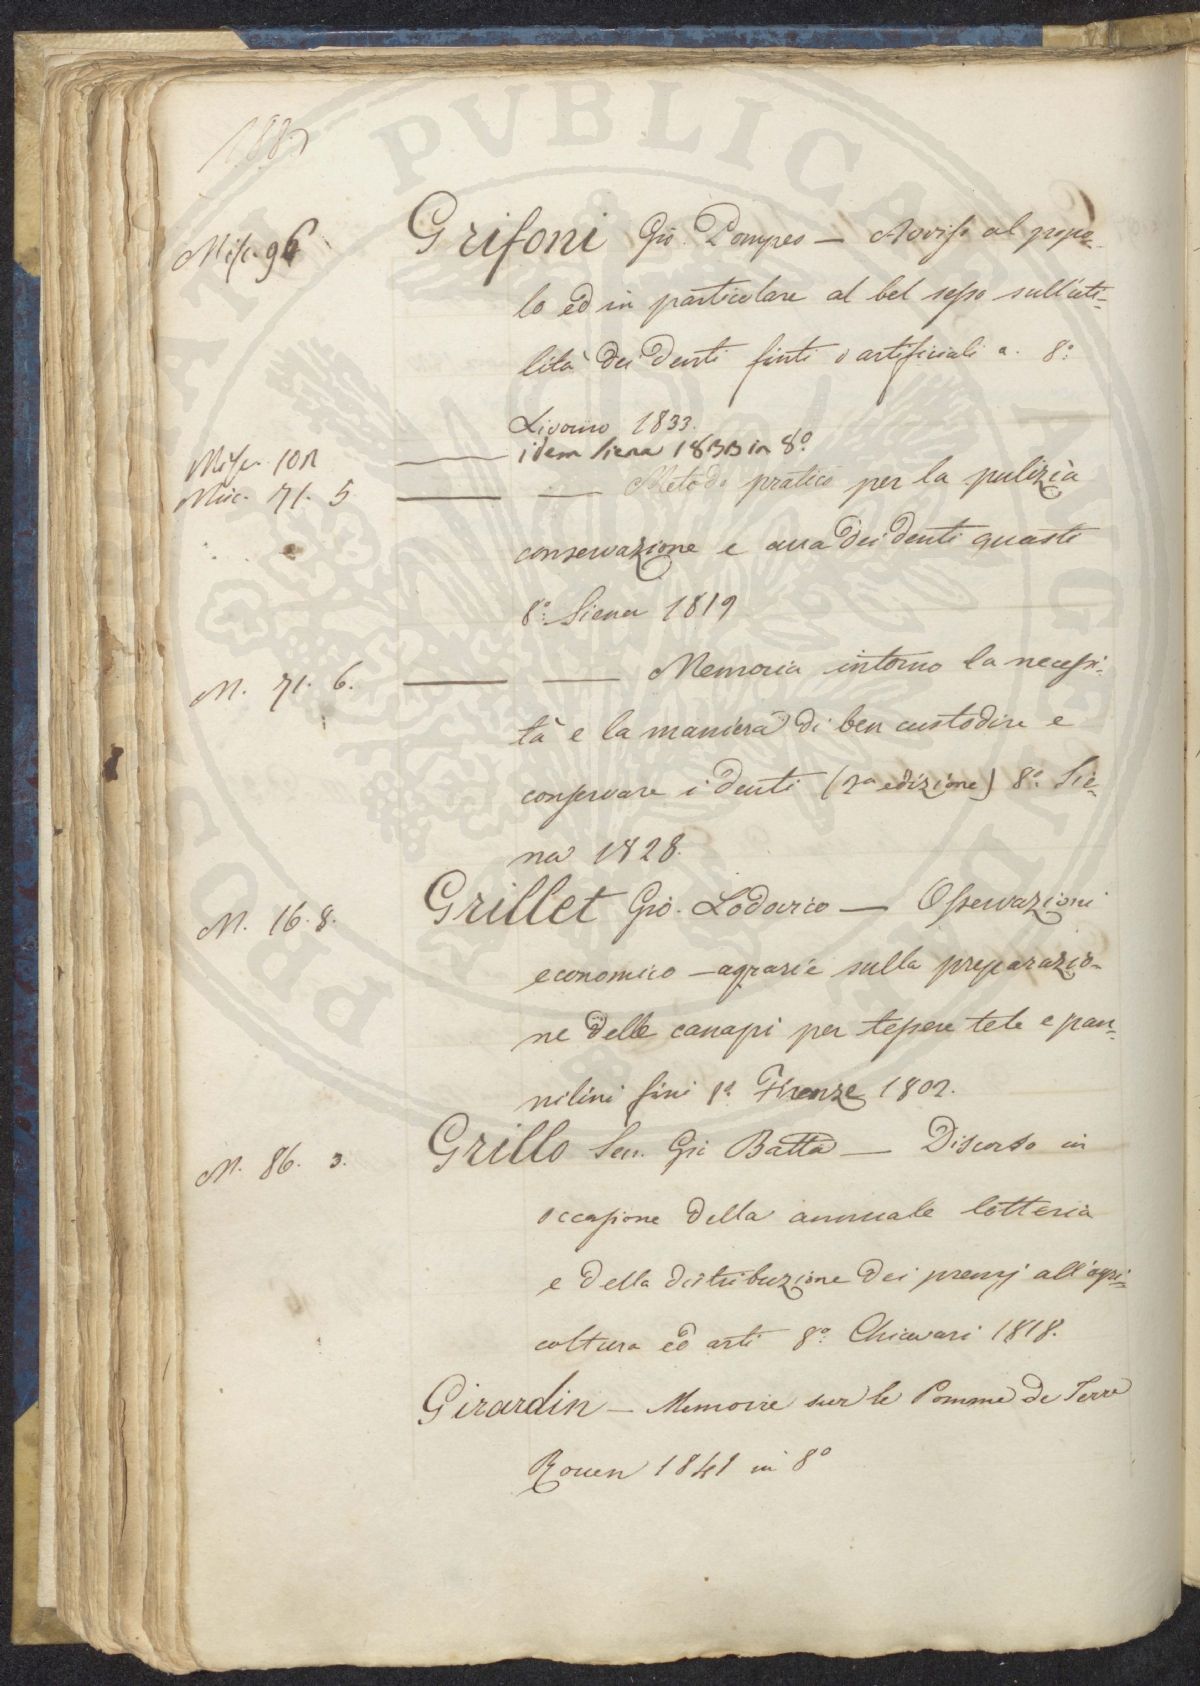 188
Misc. 96 Grifoni Gio. Pompeo — Avviso al popo-
lo ed in particolare al bel sesso sull'uti-
lità dei denti finti o artificiali a. 8.°
Livorno 1833.
Misc. 102 —— idem Siena 1833 in 8.°
Misc. 71. 5 —— —— Metodo pratico per la pulizia
conservazione e cura dei denti guasti
8.° Siena 1819
M. 71. 6. —— —— Memoria intorno la necessi-
tà e la maniera di ben custodire e
conservare i denti (2a edizione) 8.° Sie-
na 1828.
M. 16. 8. Grillet Gio. Lodovico — Osservazioni
economico-agrarie sulla preparazio-
ne delle canapi per tessere tele e pan-
nilini fini 8.° Firenze 1802.
M. 86. 3. Grillo Gio Batta — Discorso in
occasione della annuale lotteria
e della distribuzione dei premj all'agri-
coltura ed arti 8.° Chiavari 1818.
Girardin — Memoire sur le Pomme de Terre
Rouen 1841 in 8°
PROVGATI PVBLICA